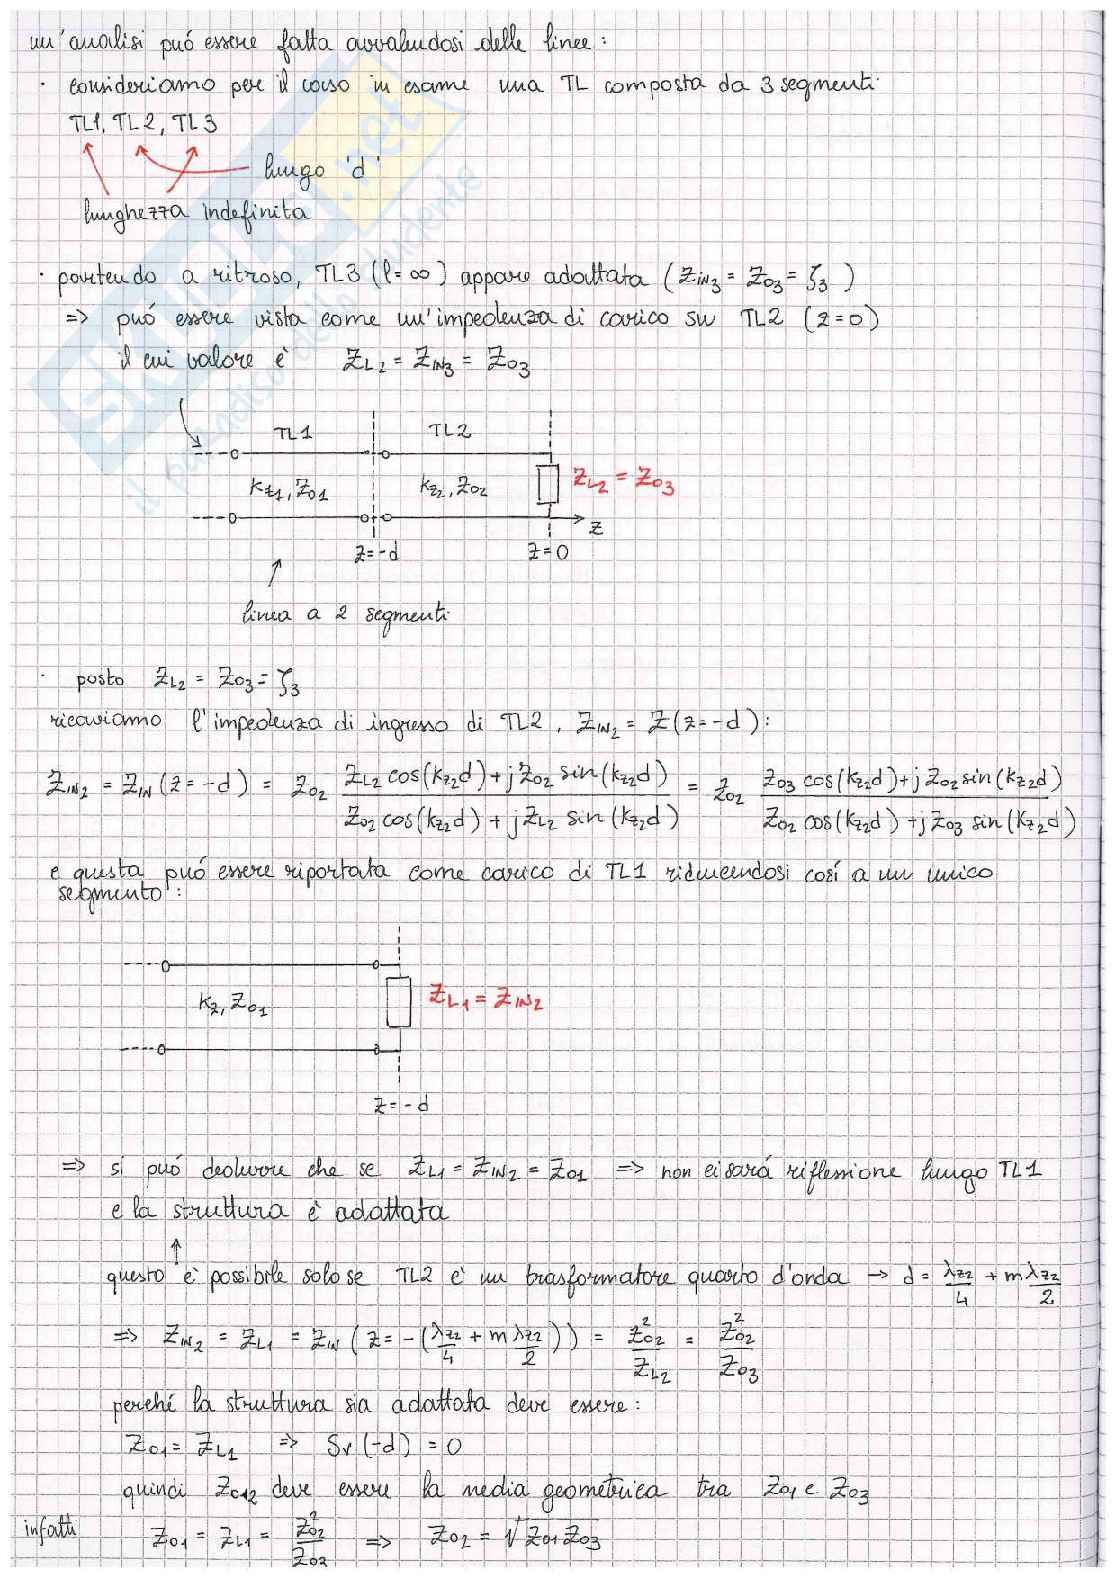 un'analisi puó essere fatta avvalendosi delle linee:
· consideriamo per il caso in esame una TL composta da 3 segmenti
TL1, TL2, TL3
lungo 'd'
lunghezza indefinita
· partendo a ritroso, TL3 (l=∞) appare adattata (Z_IN3 = Z_03 = ζ_3)
=> puó essere vista come un'impedenza di carico su TL2 (z=0)
il cui valore è Z_L2 = Z_IN3 = Z_03
TL1 TL2
k_z1, Z_01 k_z2, Z_02 Z_L2 = Z_03
z
z=-d z=0
linea a 2 segmenti
· posto Z_L2 = Z_03 = ζ_3
ricaviamo l'impedenza di ingresso di TL2, Z_IN2 = Z(z=-d):
Z_IN2 = Z_IN(z=-d) = Z_02 (Z_L2 cos(k_z2 d) + j Z_02 sin(k_z2 d)) / (Z_02 cos(k_z2 d) + j Z_L2 sin(k_z2 d)) = Z_02 (Z_03 cos(k_z2 d) + j Z_02 sin(k_z2 d)) / (Z_02 cos(k_z2 d) + j Z_03 sin(k_z2 d))
e questa puó essere riportata come carico di TL1 riducendosi cosí a un unico
segmento:
k_z, Z_01 Z_L1 = Z_IN2
z=-d
=> si puó dedurre che se Z_L1 = Z_IN2 = Z_01 => non ci sará riflessione lungo TL1
e la struttura è adattata
questo è possibile solo se TL2 è un trasformatore quarto d'onda → d = λ_z2/4 + m λ_z2/2
=> Z_IN2 = Z_L1 = Z_IN (z = -(λ_z2/4 + m λ_z2/2)) = Z_02²/Z_L2 = Z_02²/Z_03
perché la struttura sia adattata deve essere:
Z_01 = Z_L1 => S_v(-d) = 0
quindi Z_02 deve essere la media geometrica tra Z_01 e Z_03
infatti Z_01 = Z_L1 = Z_02²/Z_03 => Z_02 = √Z_01 Z_03